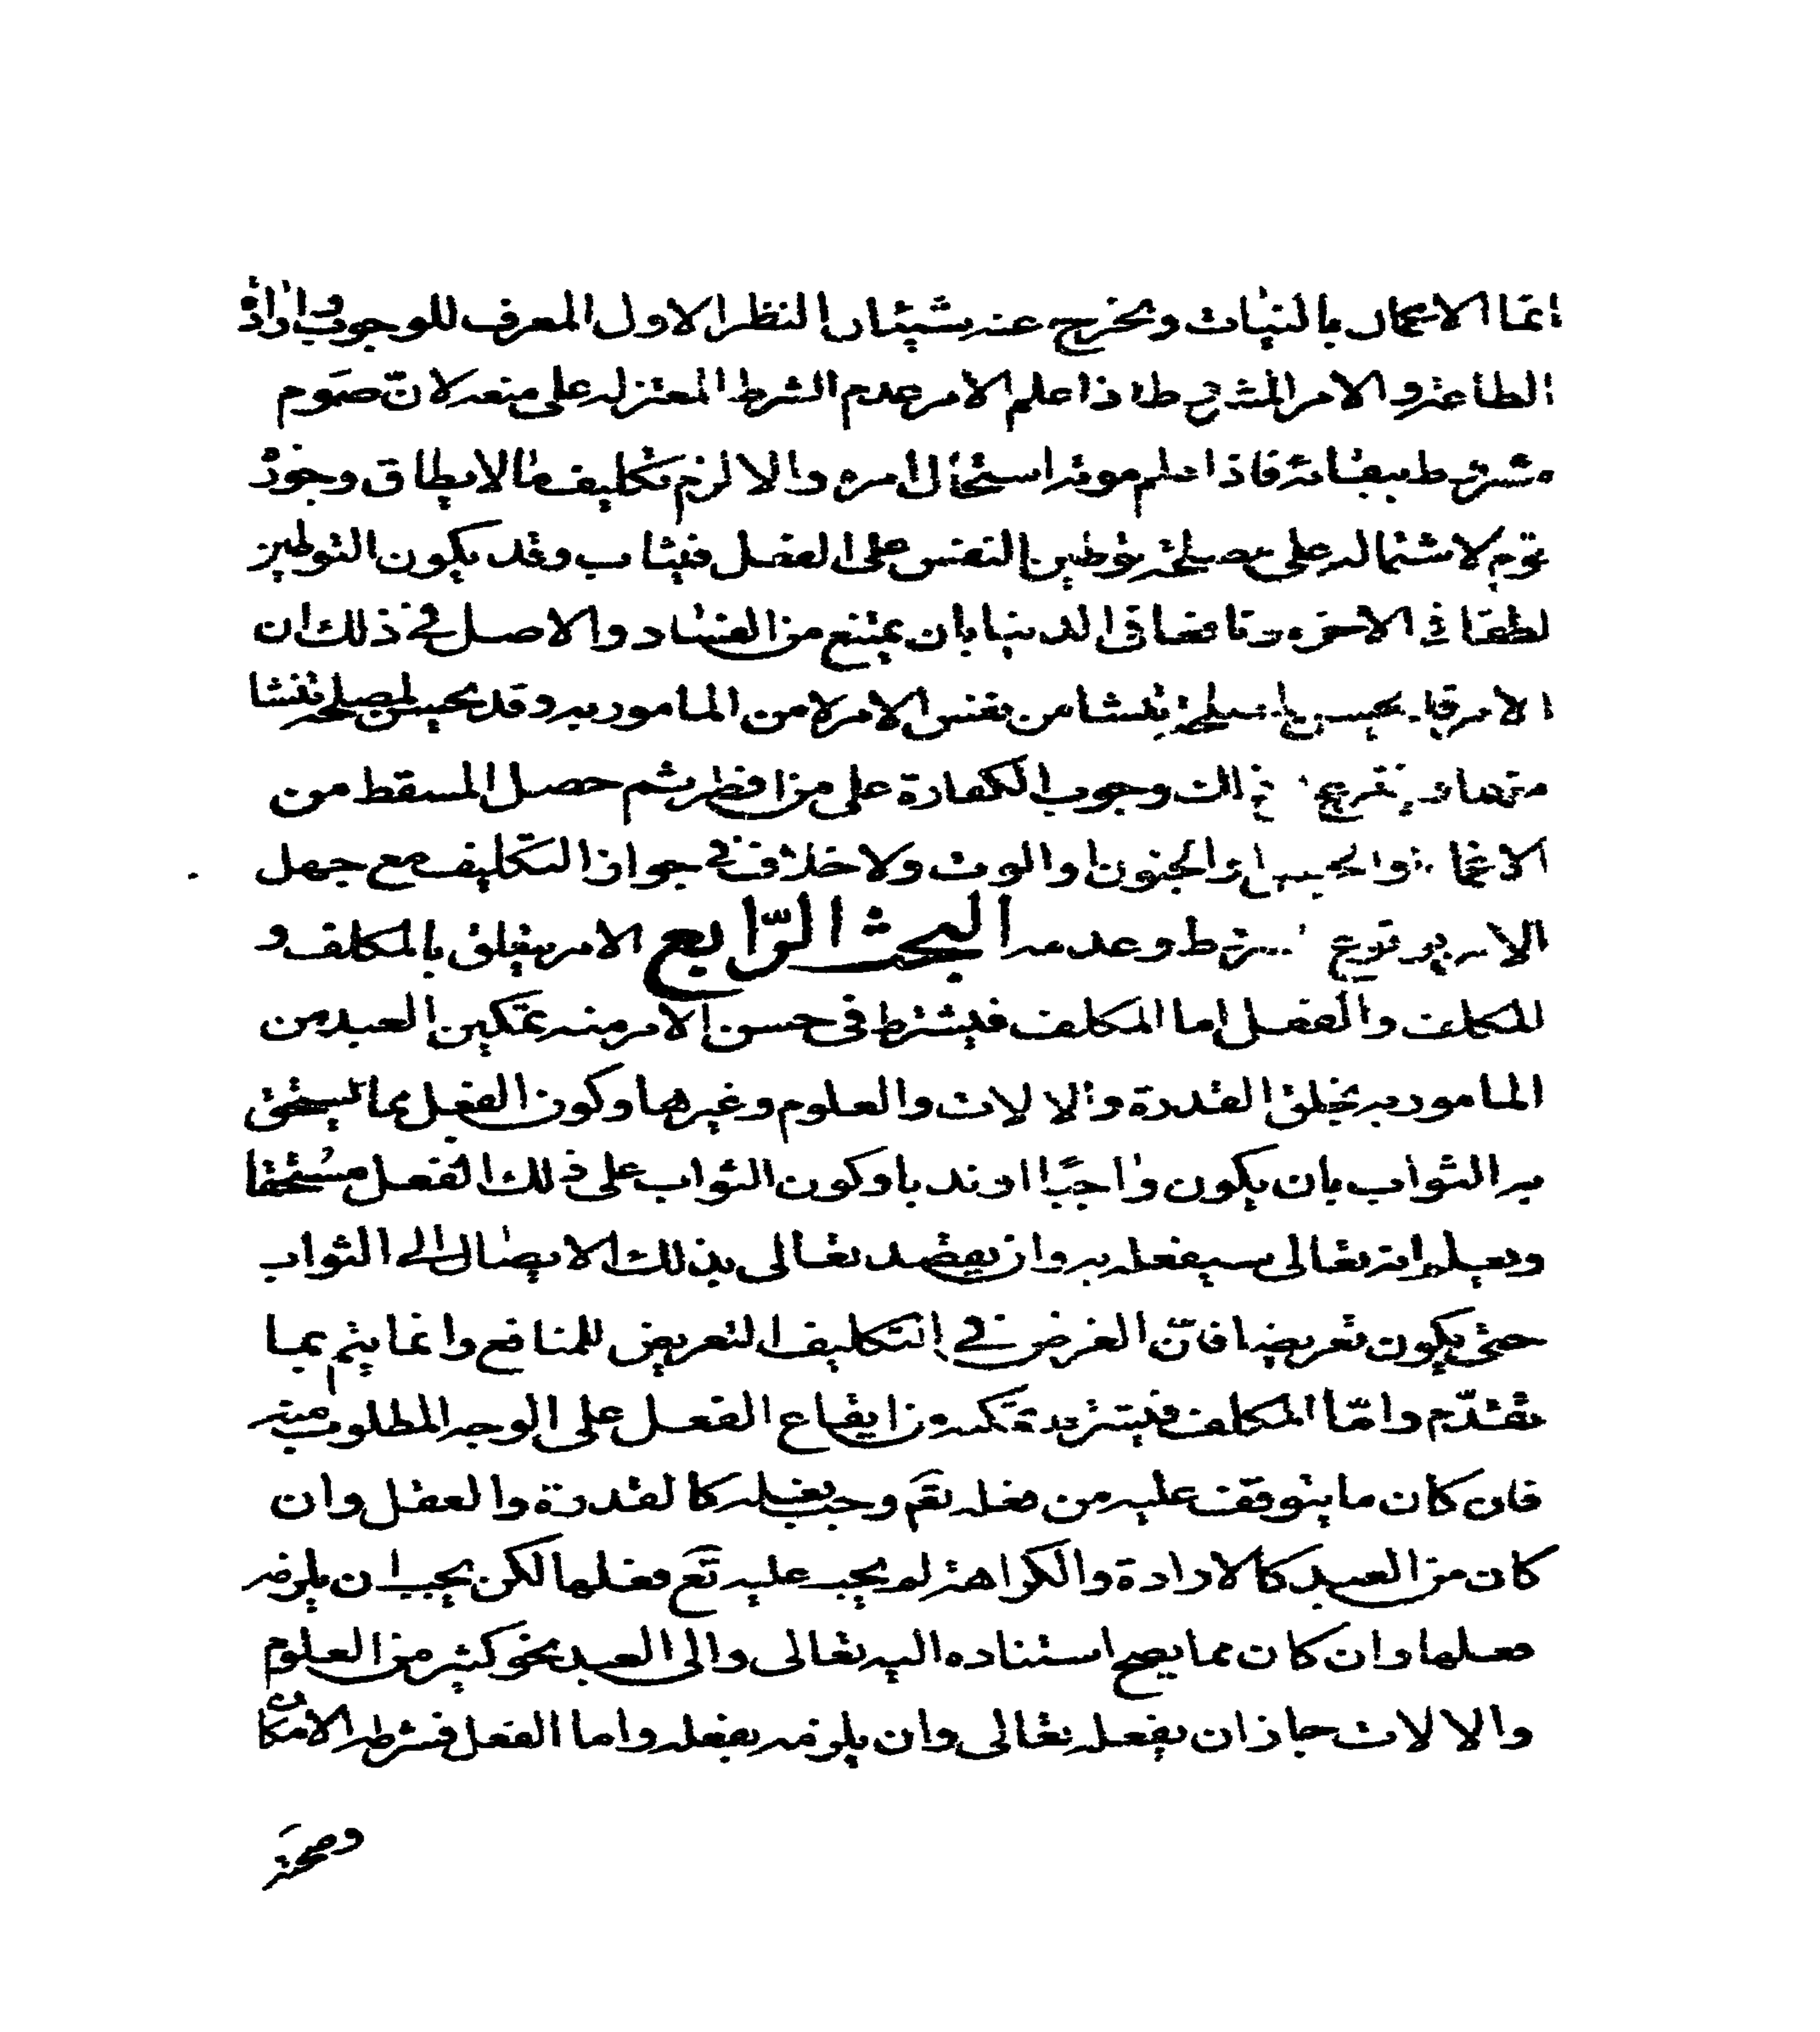 انما الاعمال بالنيات ويخرج عنه شيئان النظر الاول المعرف للوجوب وارادة
الطاعة والامر المشروط اذا علم الامر عدم الشرط المعتزله على منعه لان صوم
مشترط ببقائه فاذا علم موته استحال امره والا لزم تكليف ما لا يطاق وجوزه
قوم لاشتماله على مصلحة توطين النفس على الفعل فيثاب وقد يكون التوطين
لطفا في الاخره ونافعا في الدنيا بان يمتنع من الفساد والاصل في ذلك ان
الامر قد يحسن لمصلحة تنشا من نفس الامر لا من المامور به وقد يحسن لمصلحة تنشا
منهما ويتفرع ذلك وجوب الكفارة على من افطر ثم حصل المسقط من
الاغماء والحيض والجنون او الموت ولا خلاف في جواز التكليف مع جهل
الامر بوقوع الشرط وعدمه البحث الرابع الامر يتعلق بالمكلف و
المكلف والفعل اما المكلف فيشترط في حسن الامر منه تمكين العبد من
المامور به بخلق القدرة والالات والعلوم وغيرها وكون الفعل مما يستحق
به الثواب بان يكون واجبا او ندبا وكون الثواب على ذلك الفعل مستحقا
ويعلم انه تعالى سيفعله به وان يقصد تعالى بذلك الايصال الى الثواب
حتى يكون تعريضا فان الغرض في التكليف التعريض للمنافع وانما يتم بما
تقدم واما المكلف فيشترط تمكنه من ايقاع الفعل على الوجه المطلوب منه
فان كان ما يتوقف عليه من فعله تع وجب فعله كالقدرة والعقل وان
كان من العبد كالارادة والكراهة لم يجب عليه تع فعلها لكن يجب ان يلزمه
فعلها وان كان مما يصح استناده اليه تعالى والى العبد نحو كثير من العلوم
والالات جاز ان يفعله تعالى وان يلزمه بفعله واما الفعل فشرطه الامكان
وصحة